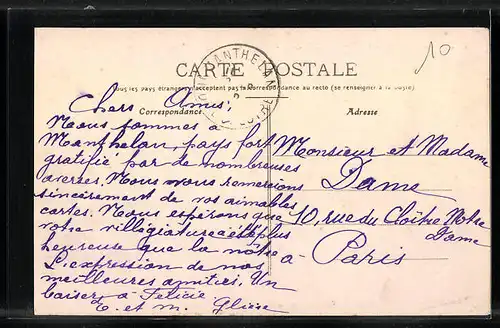 10
MANTHELAN
CARTE POSTALE
Tous les pays étrangers n'acceptent pas la correspondance au recto (se renseigner à la poste)
Correspondance
Chers Amis,
Nous sommes à
Manthelan, pays fort
gratifié par de nombreuses
averses. Nous vous remercions
sincèrement de vos aimables
cartes. Nous espérons que
votre villégiature a été plus
heureuse que la nôtre
L'expression de nos
meilleures amitiés. Un
baiser à Félicie
E. et M.
Adresse
Monsieur et Madame
Dame
10, rue du Cloître Notre
Dame
à Paris